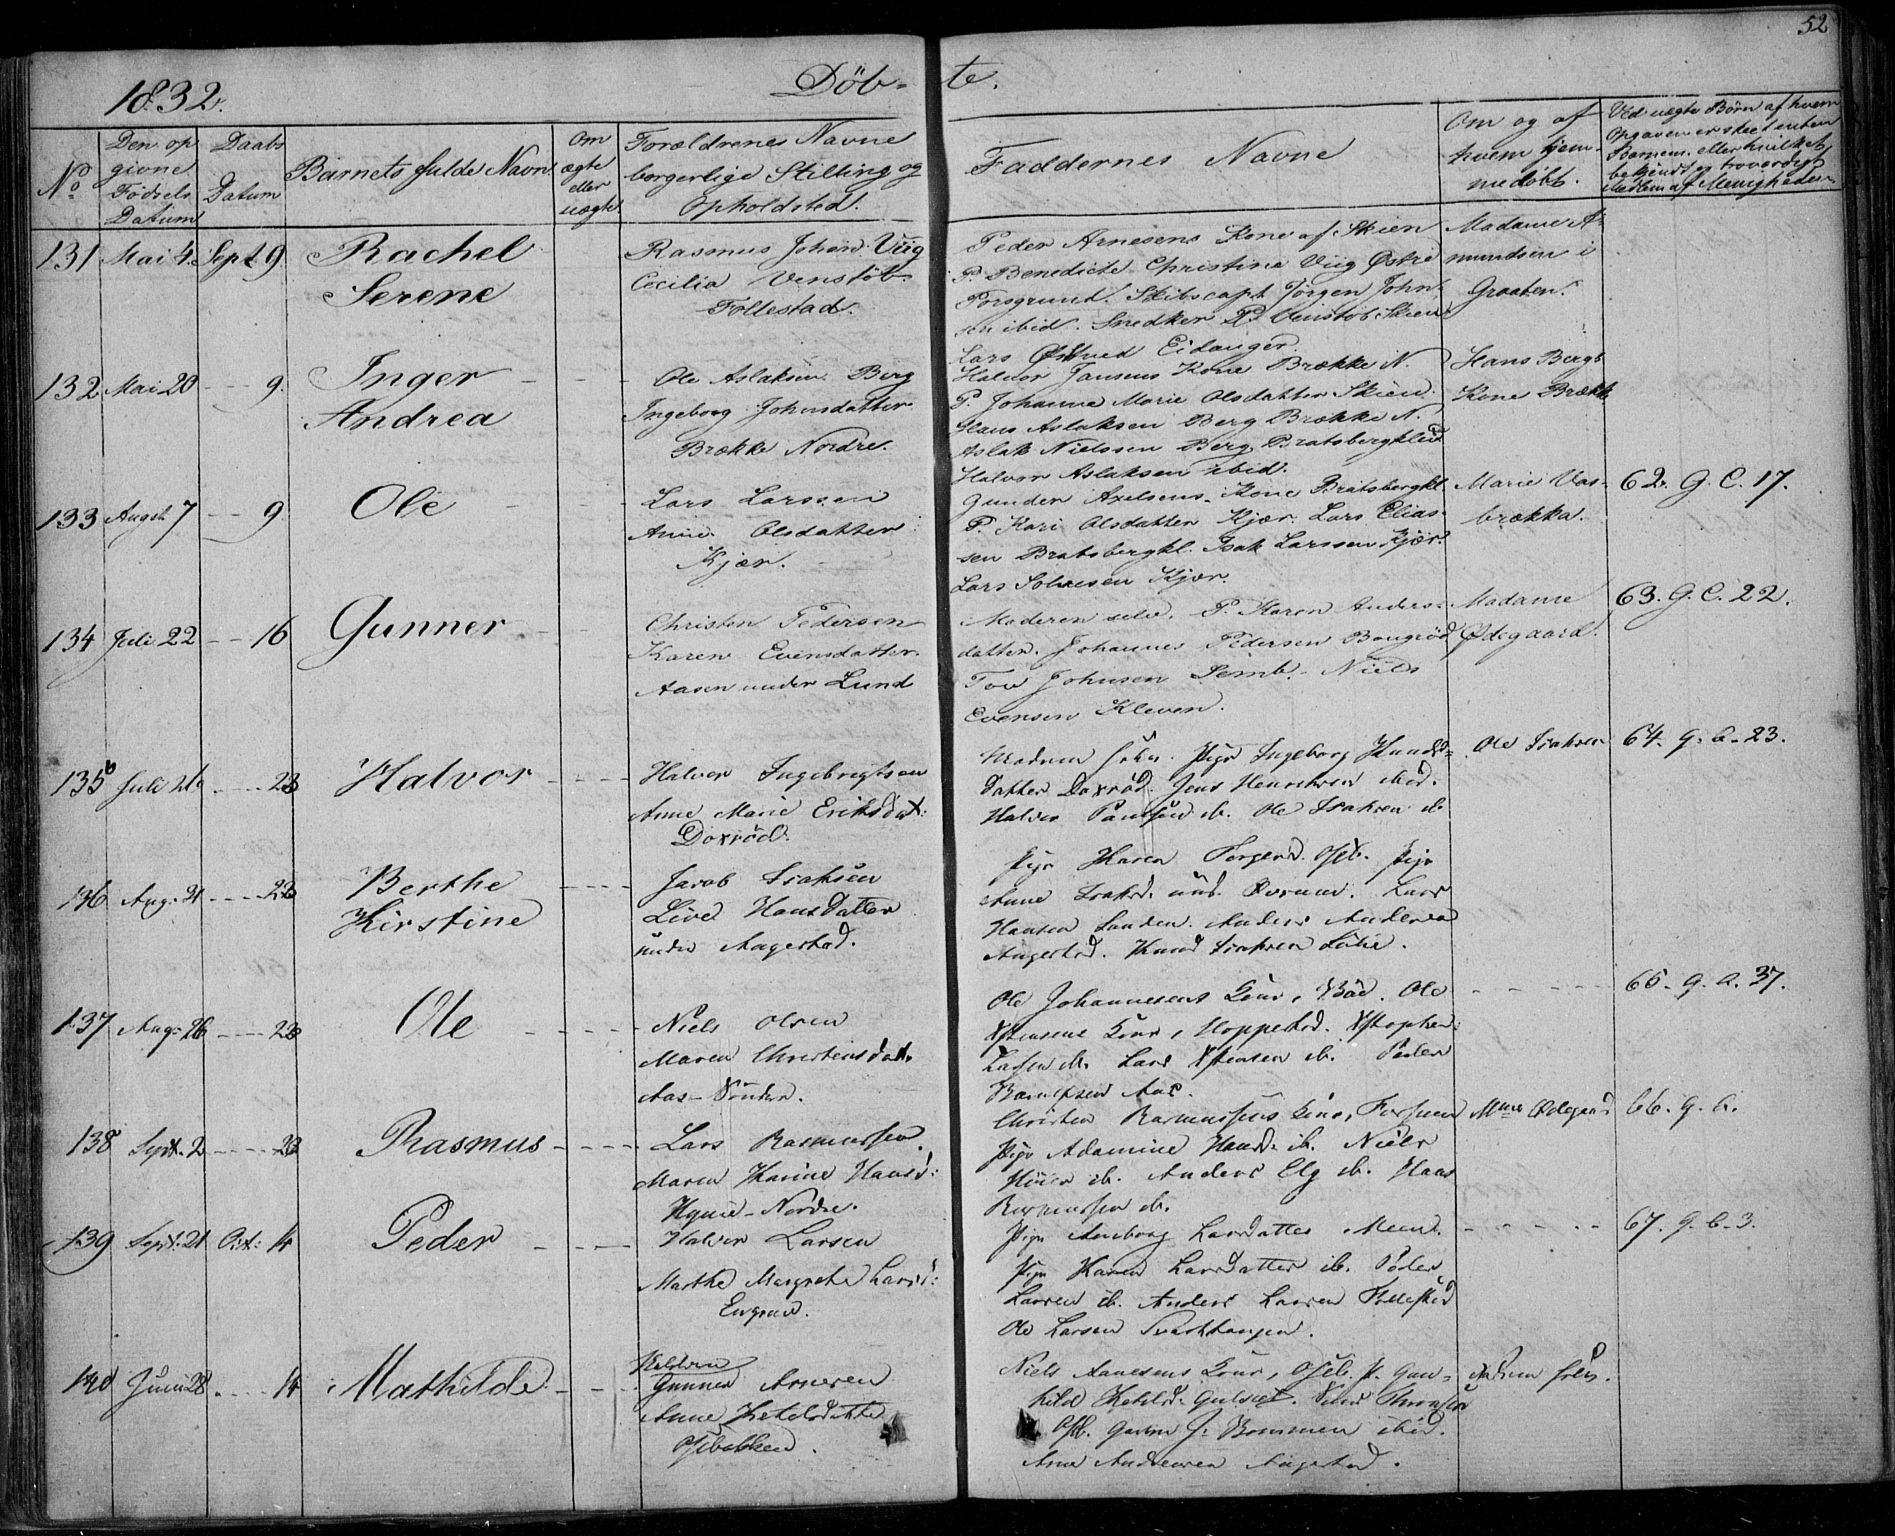 52
1832.
Döb-
te.
No
Den op
givne
Födsels
Datum
Daabs
Datum
Barnets fulde Navn
Om
ægte
eller
uægte
Forældrenes Navne
borgerlige Stilling og
Opholdsted.
Faddernes Navne
Om og af
hvem hjem-
medöbt.
Ved uægte Börn af hvem
Opgaven er skeet enten
Barnemo. eller hvilket
bekjendt og troværdigt
Medlem af Menigheden
131 Mai 4. Sept. 9.
Rachel
Serene
Rasmus Johan Viig
Cecilia Venstöb
Follestad.
Peder Arnesens Kone af Skien
P. Benedicte Christine Viig Østre
Porsgrund. Skibscapt. Jörgen John-
sen ibid. Snedker P. Venstöb Skien
Lars Eidanger.
Madame A-
mundsen i
Graaten.
132 Mai 20 - - 9.
Inger
Andrea
Ole Aslaksen Berg
Ingeborg Johnsdatter
Brække Nordre.
Halvor Jansens Kone Brække N.
P. Johanne Marie Olsdatter Skien.
Hans Aslaksen Berg Brække N.
Aslak Nielssen Berg Bratsbergkleiv
Halvor Aslaksen ibid.
Hans Bergs
Kone Brække
133 Augst. 7 - - 9
Ole
Lars Larssen
Anne Olsdatter
Kjær.
Gunder Axelsens Kone Bratsbergkl.
P. Kari Olsdatter Kjær. Lars Elias-
sen Bratsbergkl. Isak Larssen Kjær.
Lars Kjær.
Marie Vas-
brække.
62. G. C. 17.
134 Juli 22 - - 16
Gunner
Christen Pedersen
Karen Evensdatter
Aasen under Lund
Moderen selv. P. Karen Anders-
datter. Johannes Pedersen
Tov Johnsen Semb. Niels
Evensen Kleven.
Madame
Ødegaard.
63. G. C. 22.
135 Juli 26 - - 23
Halvor
Halvor Ingebrigtsen
Anne Marie Eriksdat:
Doxröd.
Moderen selv. Pige Ingeborg Knuds-
datter Doxröd. Jens Henriksen ibid.
Halvor ib. Ole Isaksen ib
Ole Isaksen
64. G. C. 23.
136 Aug. 21 - - 23
Berthe
Kirstine
Jacob Isaksen
Live Hansdatter
under Aagestad.
Pige Karen Oseb. Pige
Anne Isaksd. und. Lars
Hansen Sanden. Anders Andersen
Aagestad. Knud Isaksen
137 Aug. 26 - - 23
Ole
Niels Olsen
Maren Christensdat.
Aas-Söndre.
Ole Johannesens Kone, Ole
Xstensens Kone, Hoppestad. Xstopher
ib. Lars Xstensen ib. Peder
Aas.
65. G. C. 37.
138 Sept. 2 - - 23
Rasmus
Lars Rasmussen
Maren Karine Hansd:
Nordre.
Christen Rasmussens Kone,
Pige Adamine Hansd. ib. Niels
ib. Anders Elg ib. Hans
Rasmussen ib.
Mme Ødegaard
66. G. C.
139 Sept. 21 Oct: 14
Peder
Halvor Larsen
Marthe Margrete Larsd:
Pige Anborg Larsdatter Meen.
Pige Karen Larsdatter ib. Peder
Larsen ib. Anders Larsen
Ole Larsen
67. G. C. 3.
140 Juni 28 - - 14
Mathilde
Gunner Arnesen
Anne Ketelsdatter
Osebakken.
Niels Aanesens Kone, Oseb. P. Gun-
hild Ketelsd. Gulset.
Oseb. J. Bommen ibid.
Arne Andersen Aagestad.
Moderen selv.